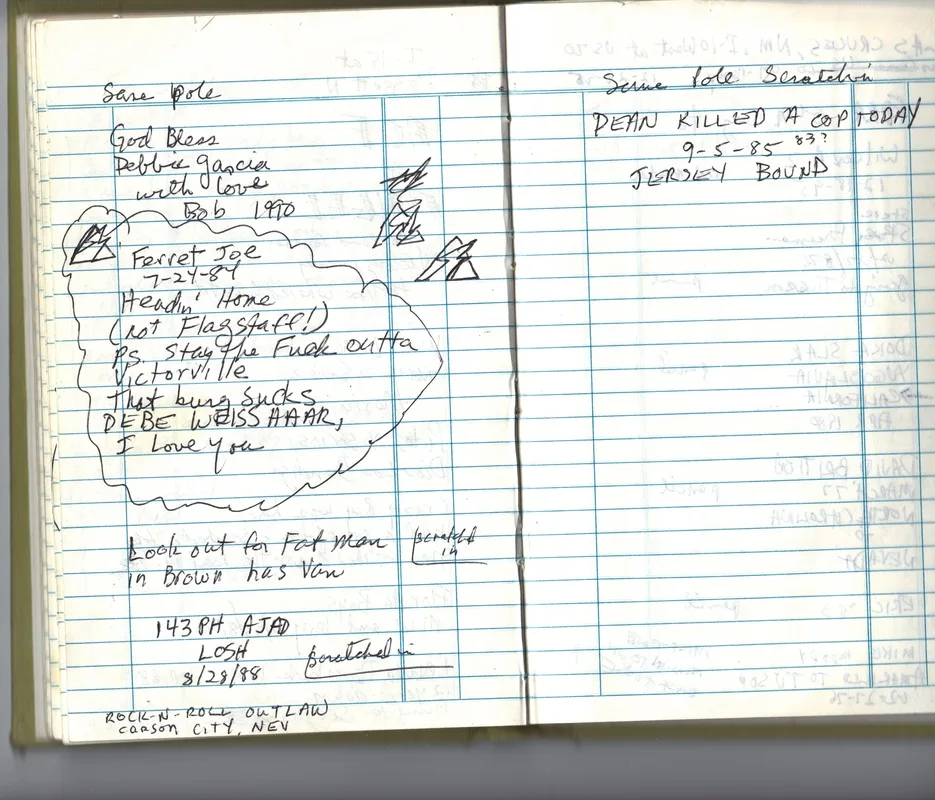 Same pole
God Bless
Debbie Garcia
with love
Bob 1990
Ferret Joe
7-24-84
Headin' Home
(not Flagstaff!)
Ps. Stay the Fuck outta
Victorville
That burg Sucks
DEBE WEISSHAAR,
I love you
Look out for Fat man
in Brown has Van
scratched
in
143 PH AJAD
LOSH
8/28/88
scratched in
ROCK-N-ROLL OUTLAW
CARSON CITY, NEV
Same Pole Scratched in
DEAN KILLED A COP TODAY
9-5-85 83?
JERSEY BOUND